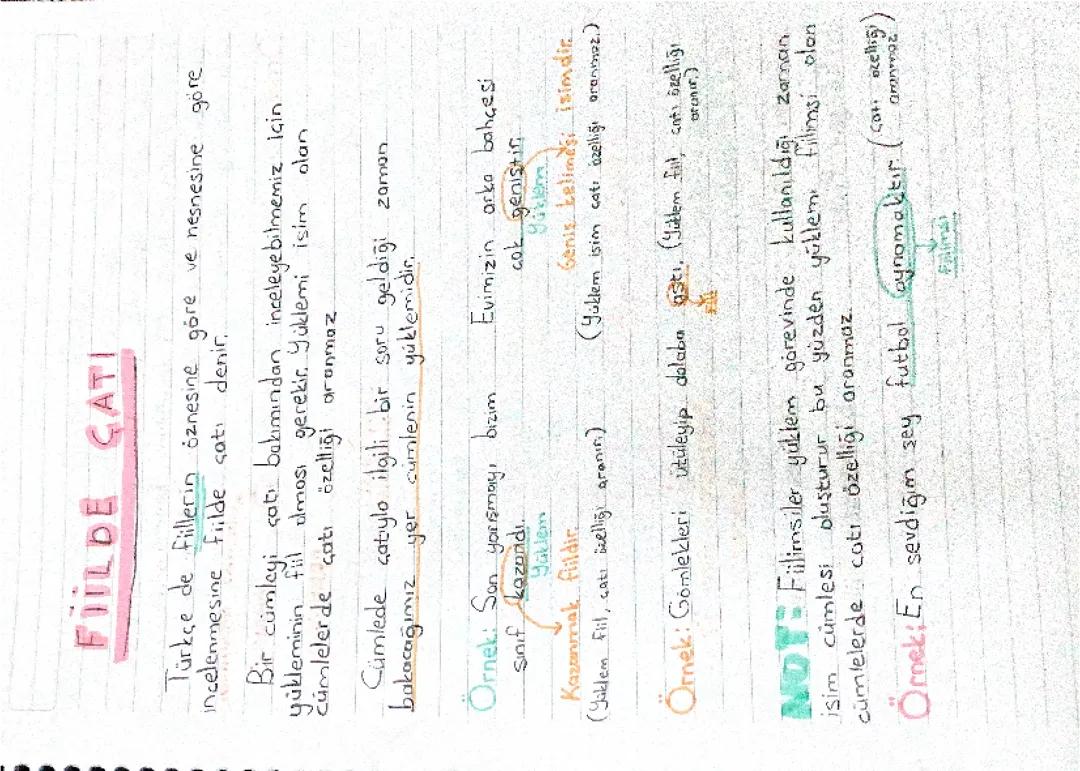 FİİLDE ÇATI
Türkçe de fiillerin öznesine göre ve nesnesine göre
incelenmesine fiilde çatı denir.
Bir cümleyi çatı bakımından inceleyebilmemiz için
yükleminin fiil olması gerekir. Yüklemi isim olan
cümlelerde çatı özelliği aranmaz
Cümlede çatıyla ilgili bir soru geldiği zaman
bakacağımız yer cümlenin yüklemidir.
Örnek: Son yarışmayı bizim
sınıf kazandı.
Yüklem
Kazanmak fiildir.
(Yüklem fiil, çatı özelliği aranır.)
Evimizin arka bahçesi
çok geniştir.
Yüklem
Geniş kelimesi isimdir.
(Yüklem isim çatı özelliği aranmaz.)
Örnek: Gömlekleri ütüleyip dolaba astı. (Yüklem fiil, çatı özelliği
aranır.)
NOT: Fiilimsiler yüklem görevinde kullanıldığı zaman
isim cümlesi oluşturur bu yüzden yüklemi fiilimsi olan
cümlelerde çatı özelliği aranmaz.
Örnek: En sevdiğim şey futbol oynamaktır. (çatı özelliği
aranmaz)
Fiilimsi